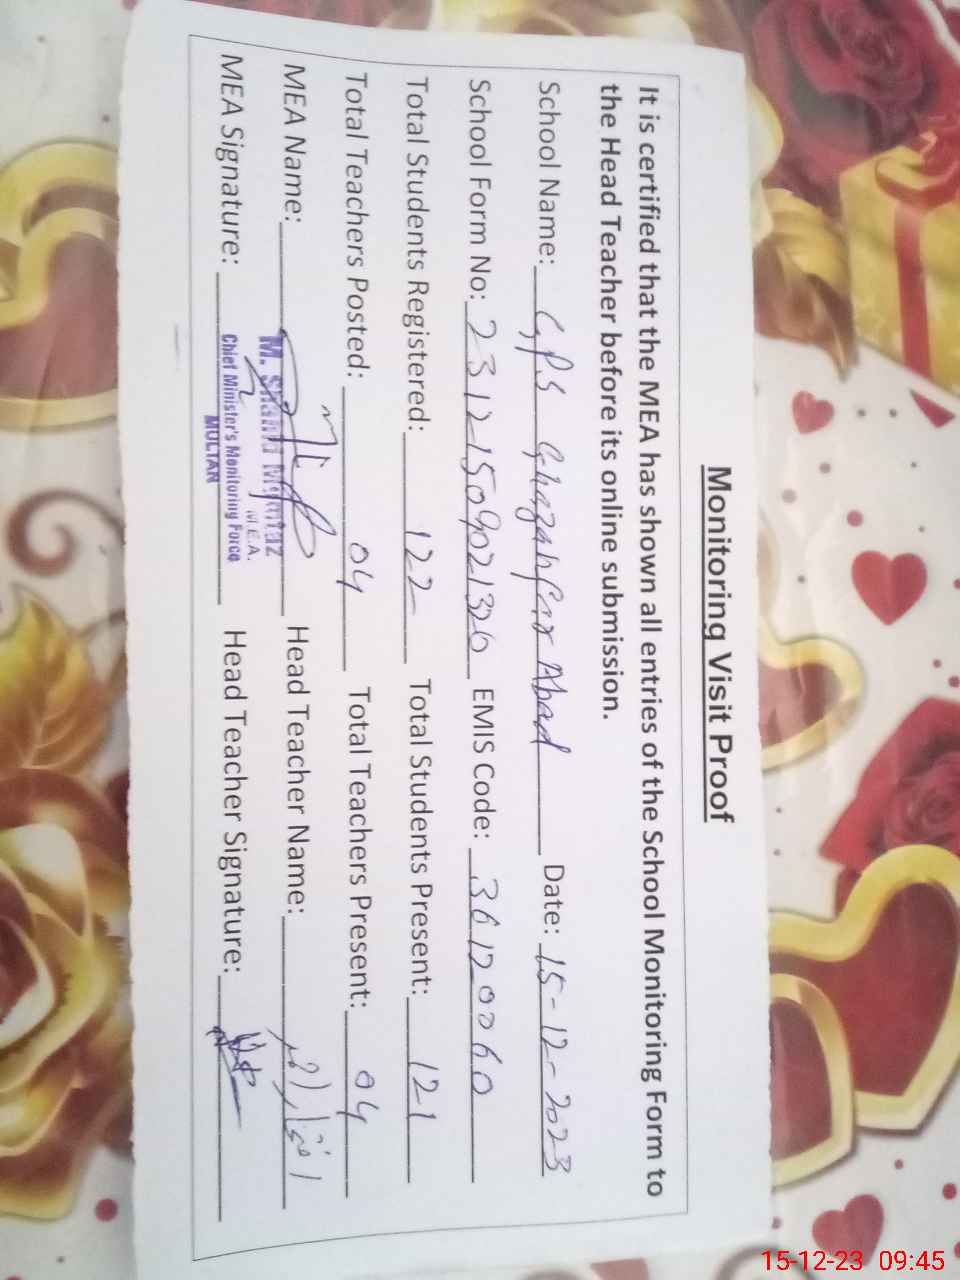 Monitoring Visit Proof
It is certified that the MEA has shown all entries of the School Monitoring Form to
the Head Teacher before its online submission.
School Name: GPS Ghazanfar Abad Date: 15-12-2023
School Form No: 23121509021326 EMIS Code: 36120060
Total Students Registered: 122 Total Students Present: 121
Total Teachers Posted: 04 Total Teachers Present: 04
MEA Name: Head Teacher Name: افتخار احمد
M. Shahid Mumtaz
M.E.A.
MEA Signature: Chief Minister's Monitoring Force Head Teacher Signature:
MULTAN
15-12-23 09:45